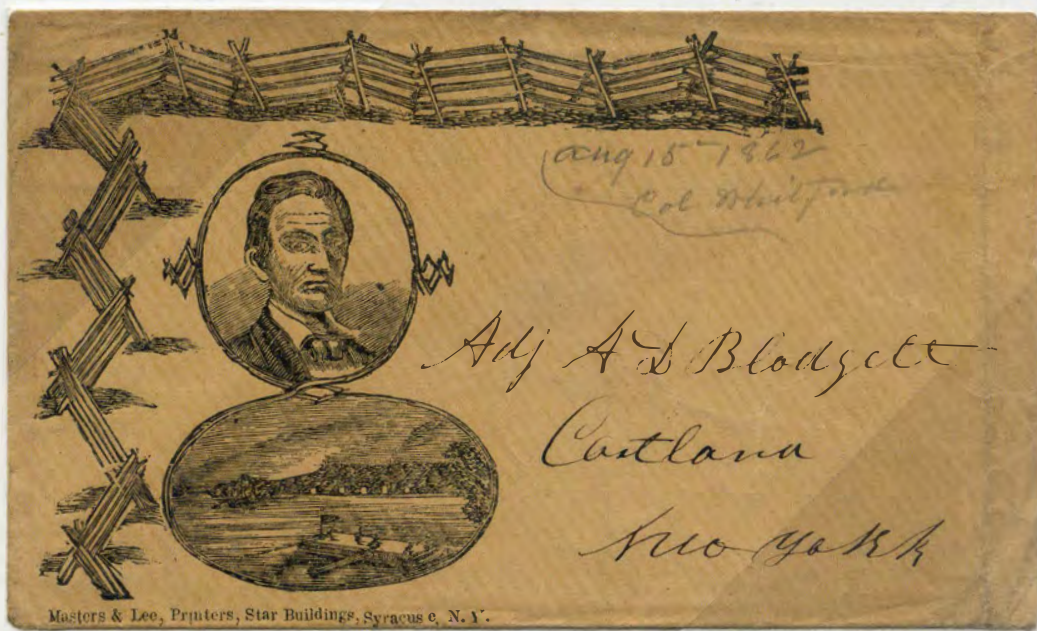 Aug 15 1862
Col Whitford
Adj A D Blodgett
Cortland
New York
Masters & Lee, Printers, Star Buildings, Syracuse, N. Y.